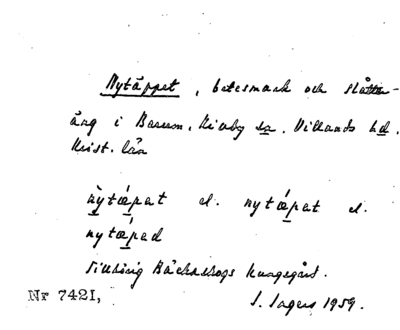 Nytäppet, betesmark och slåtter-
äng i Barum, Kiaby sn. Villands hd.
Krist. län
nytæpat el. nytæpat el.
nytæpad
Tillhörig Bäckaskogs kungsgård.
Nr 7421, S. Ingers 1959.